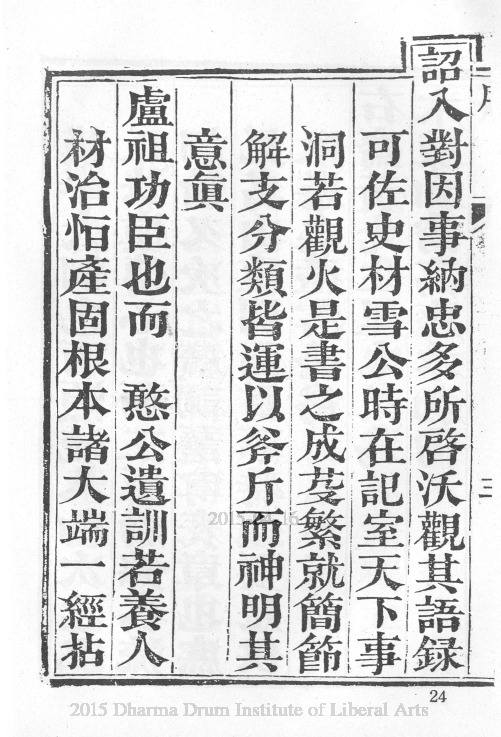 詔入對因事納忠多所啓沃觀其語録
可佐史材雪公時在記室天下事
洞若觀火是書之成芟繁就簡節
解支分類皆運以斧斤而神明其
意眞
盧祖功臣也而 憨公遺訓若養人
材治恒產固根本諸大端一經拈
三
24
2015 Dharma Drum Institute of Liberal Arts